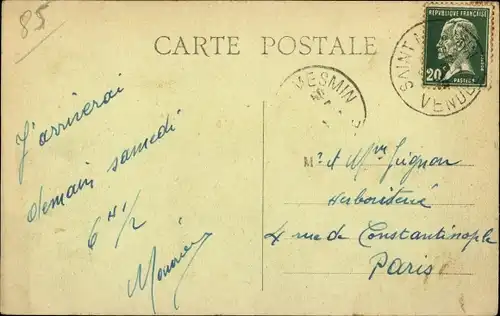 85
CARTE POSTALE
REPUBLIQUE FRANÇAISE
20
PASTEUR
SAINT M
VENDÉE
MESMIN
J'arriverai
demain samedi
6 H 1/2
Mr et Mme Grignon
Herboristerie
4 rue de Constantinople
Paris